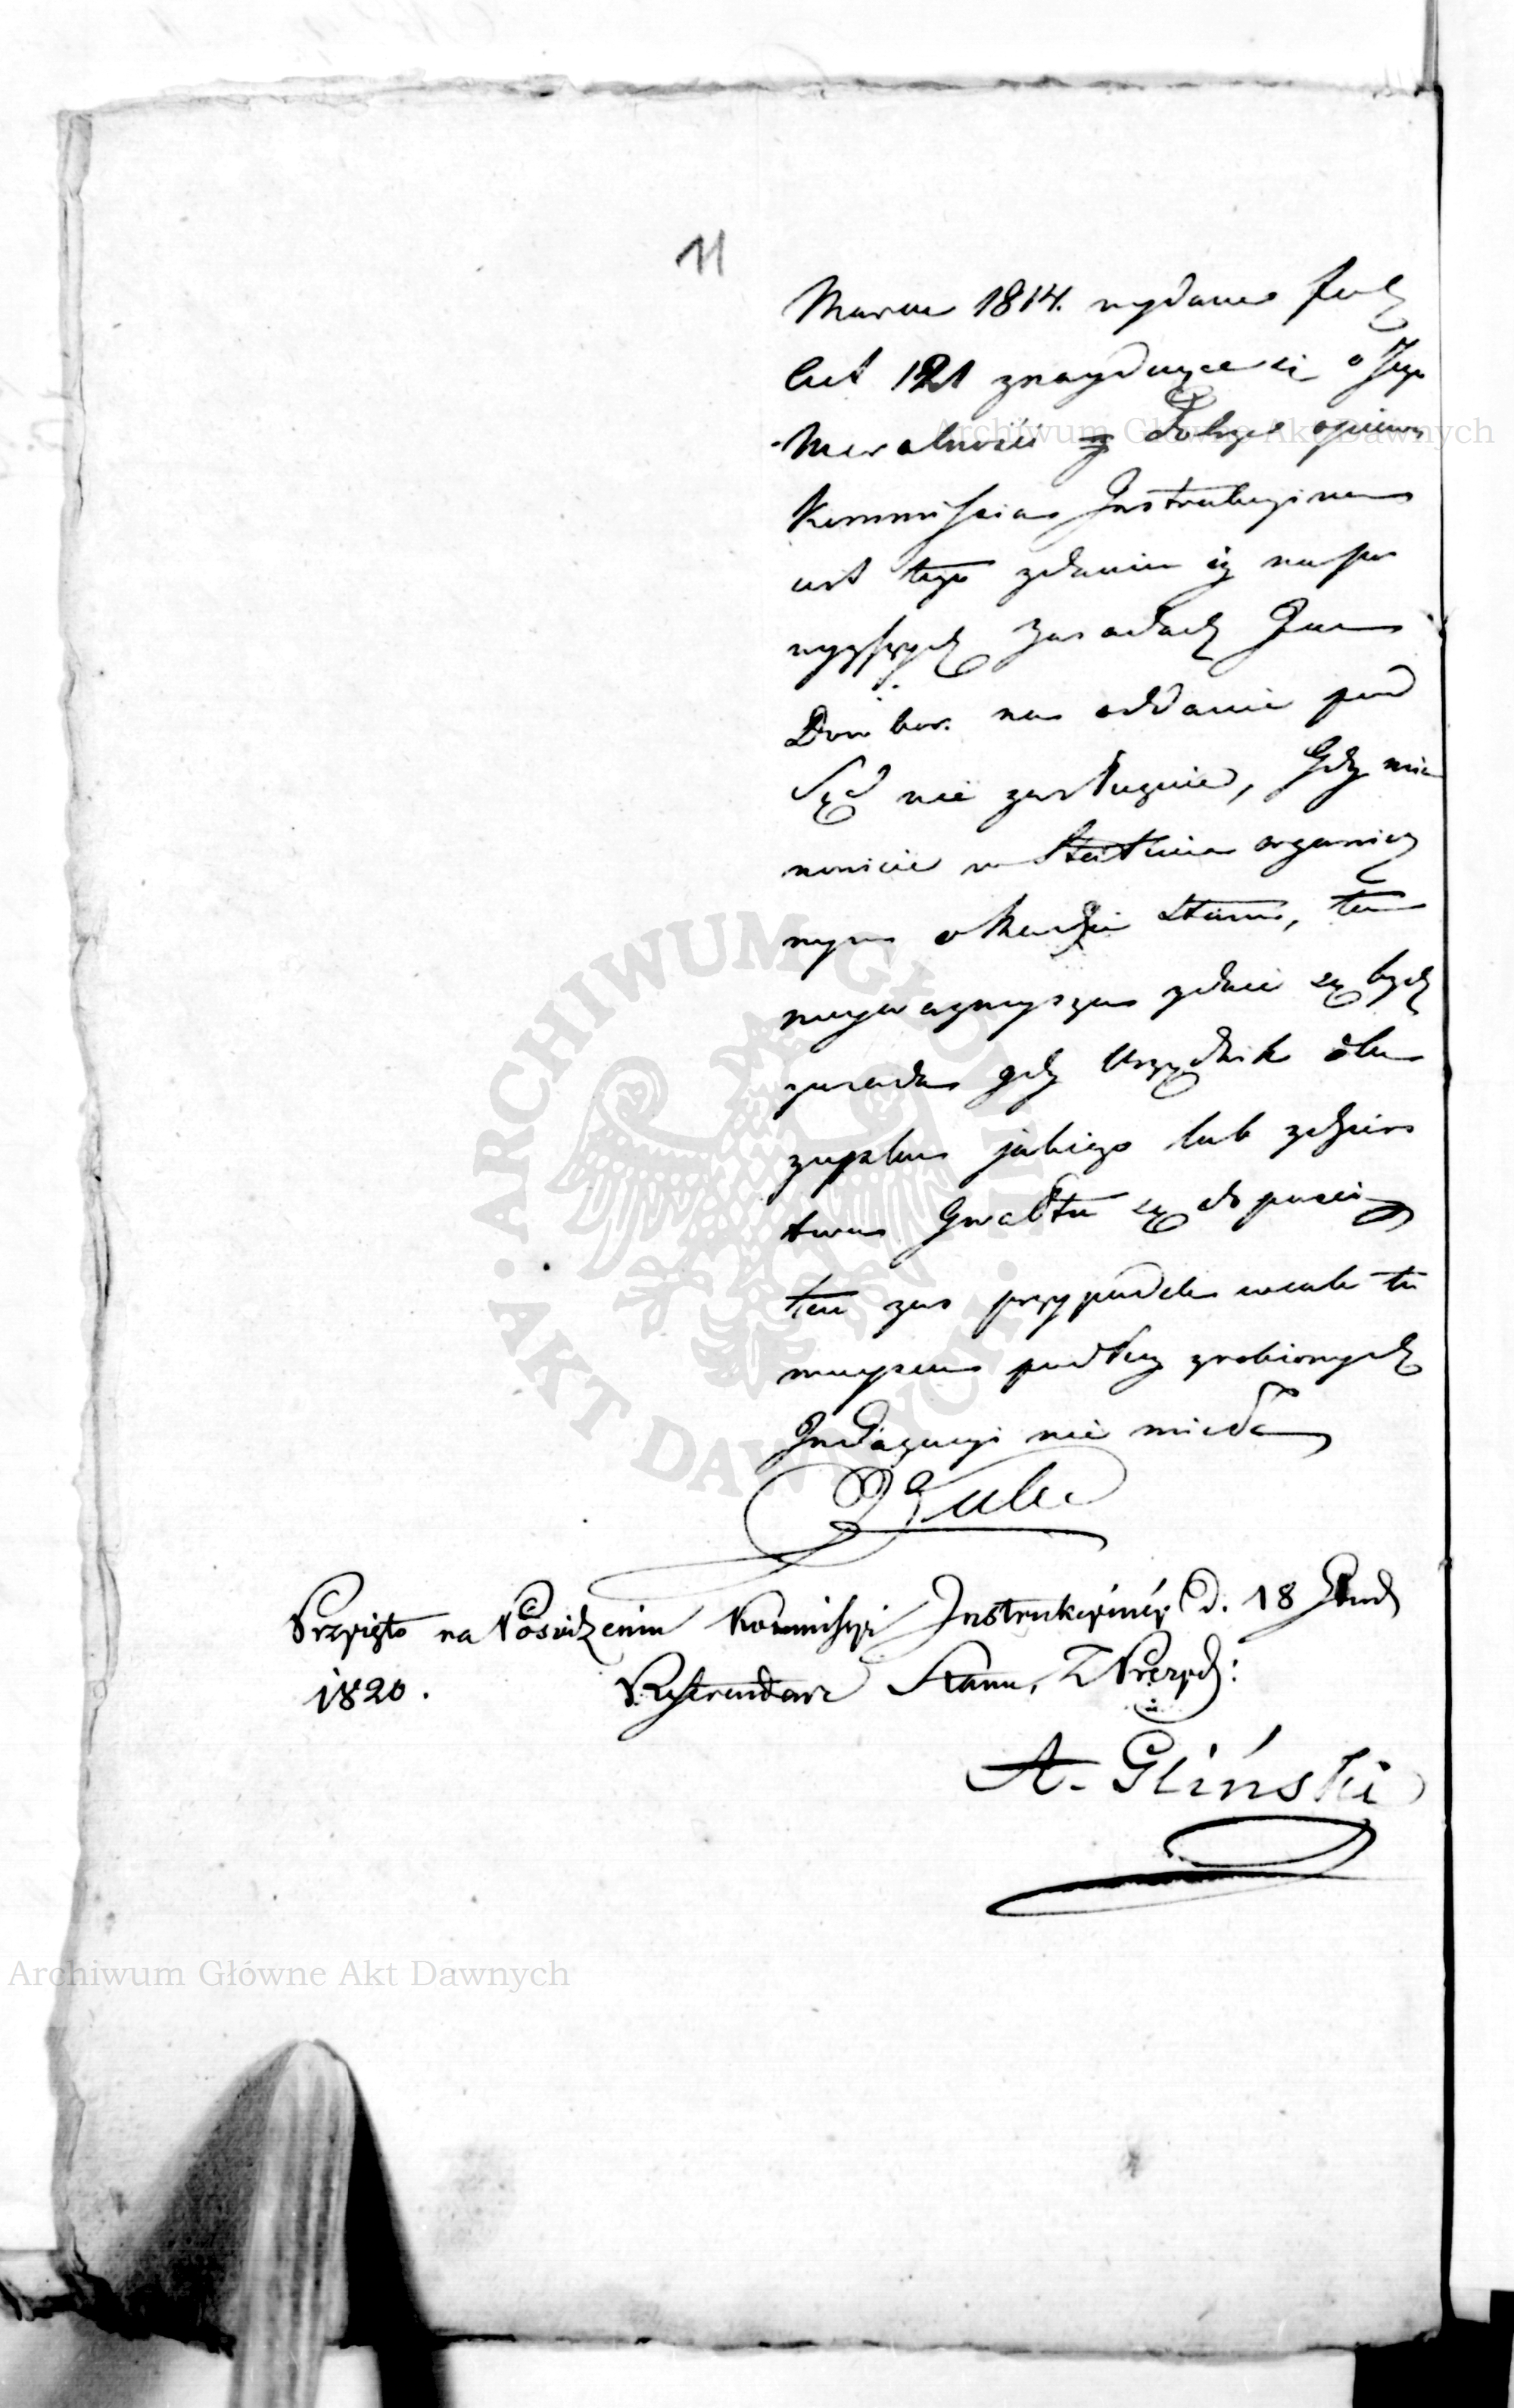 11
Marca 1814. wydane fol
lit 121 znayduiące się o Jego
Moralności dobrze opiewa
Kommissia Instrukcyina
iest tego zdania iż na po
wyższych Zasadach Jan
Dombor. na oddanie pod
Sąd nie zasługuie, Gdy mia
nowicie w Statucie organicz
nym o Radzie Stanu, ta
nayważnieysza zdaie się bydź
zasada gdy Urzędnik
jakiego lub zdzier
stwa Gwałtu się dopuści
ten zas przypadek wcale tu
mieysca podług zrobionych
Indagacyi nie miał
Przyięto na Posiedzeniu Kommissyi Instrukcyinéy d. 18 Grud
1820. Referendarz Stanu, Z. Prezyd:
A. Gliński
Archiwum Główne Akt Dawnych
Archiwum Główne Akt Dawnych
ARCHIWUM GŁÓWNE · AKT DAWNYCH ·